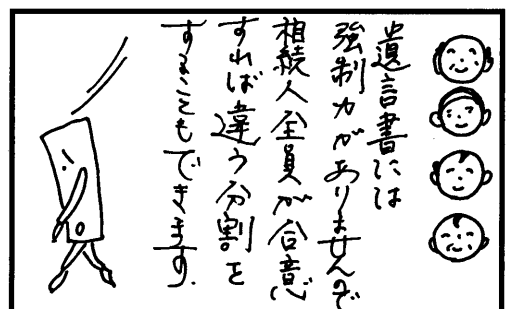 遺言書には
強制力がありませんので
相続人全員が合意
すれば違う分割を
することもできます.